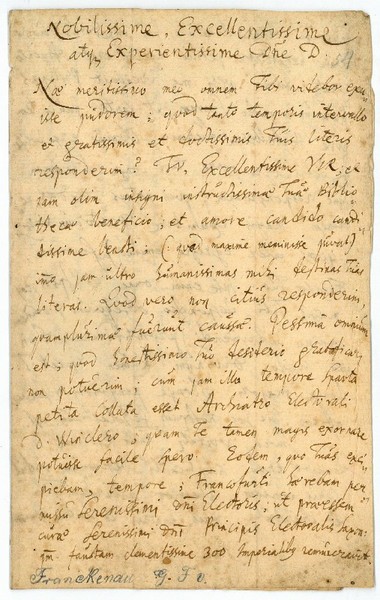 Nobilissime, Excellentissime
atq; Experientissime Dne D.
Nae meritissimo meo omnem Tibi videbor exu-
isse pudorem; quod tanto temporis intervallo
et gratissimis et doctissimis Tuis literis
responderim? Tu, Excellentissime Vir, et
jam olim insigni instructissimae Tuae Biblio
thecae beneficio, et amore candido candi
dissime beasti; (: quod maxime meminisse juvat)
imo jam ultro humanissimas mihi destinas Tuas
literas. Quod vero non citius responderim,
quamplurimae fuerunt caussae. Pessima omnium
est, quod honestissimo Tuo desiderio gratificari
non potuerim, cum jam illo tempore
petita collata esset Archiatro Electorali
D. Winclero, quam Te tamen magis exornare
potuisse facile spero. Eodem, quo Tuas exci-
piebam, tempore, Francofurti haerebam per-
missu Serenissimi Dni Electoris, ut provessem
curae Serenissimi Dni Principis Electoralis
faustam clementissime 300 Imperialib9
Franckenau G. F. v.